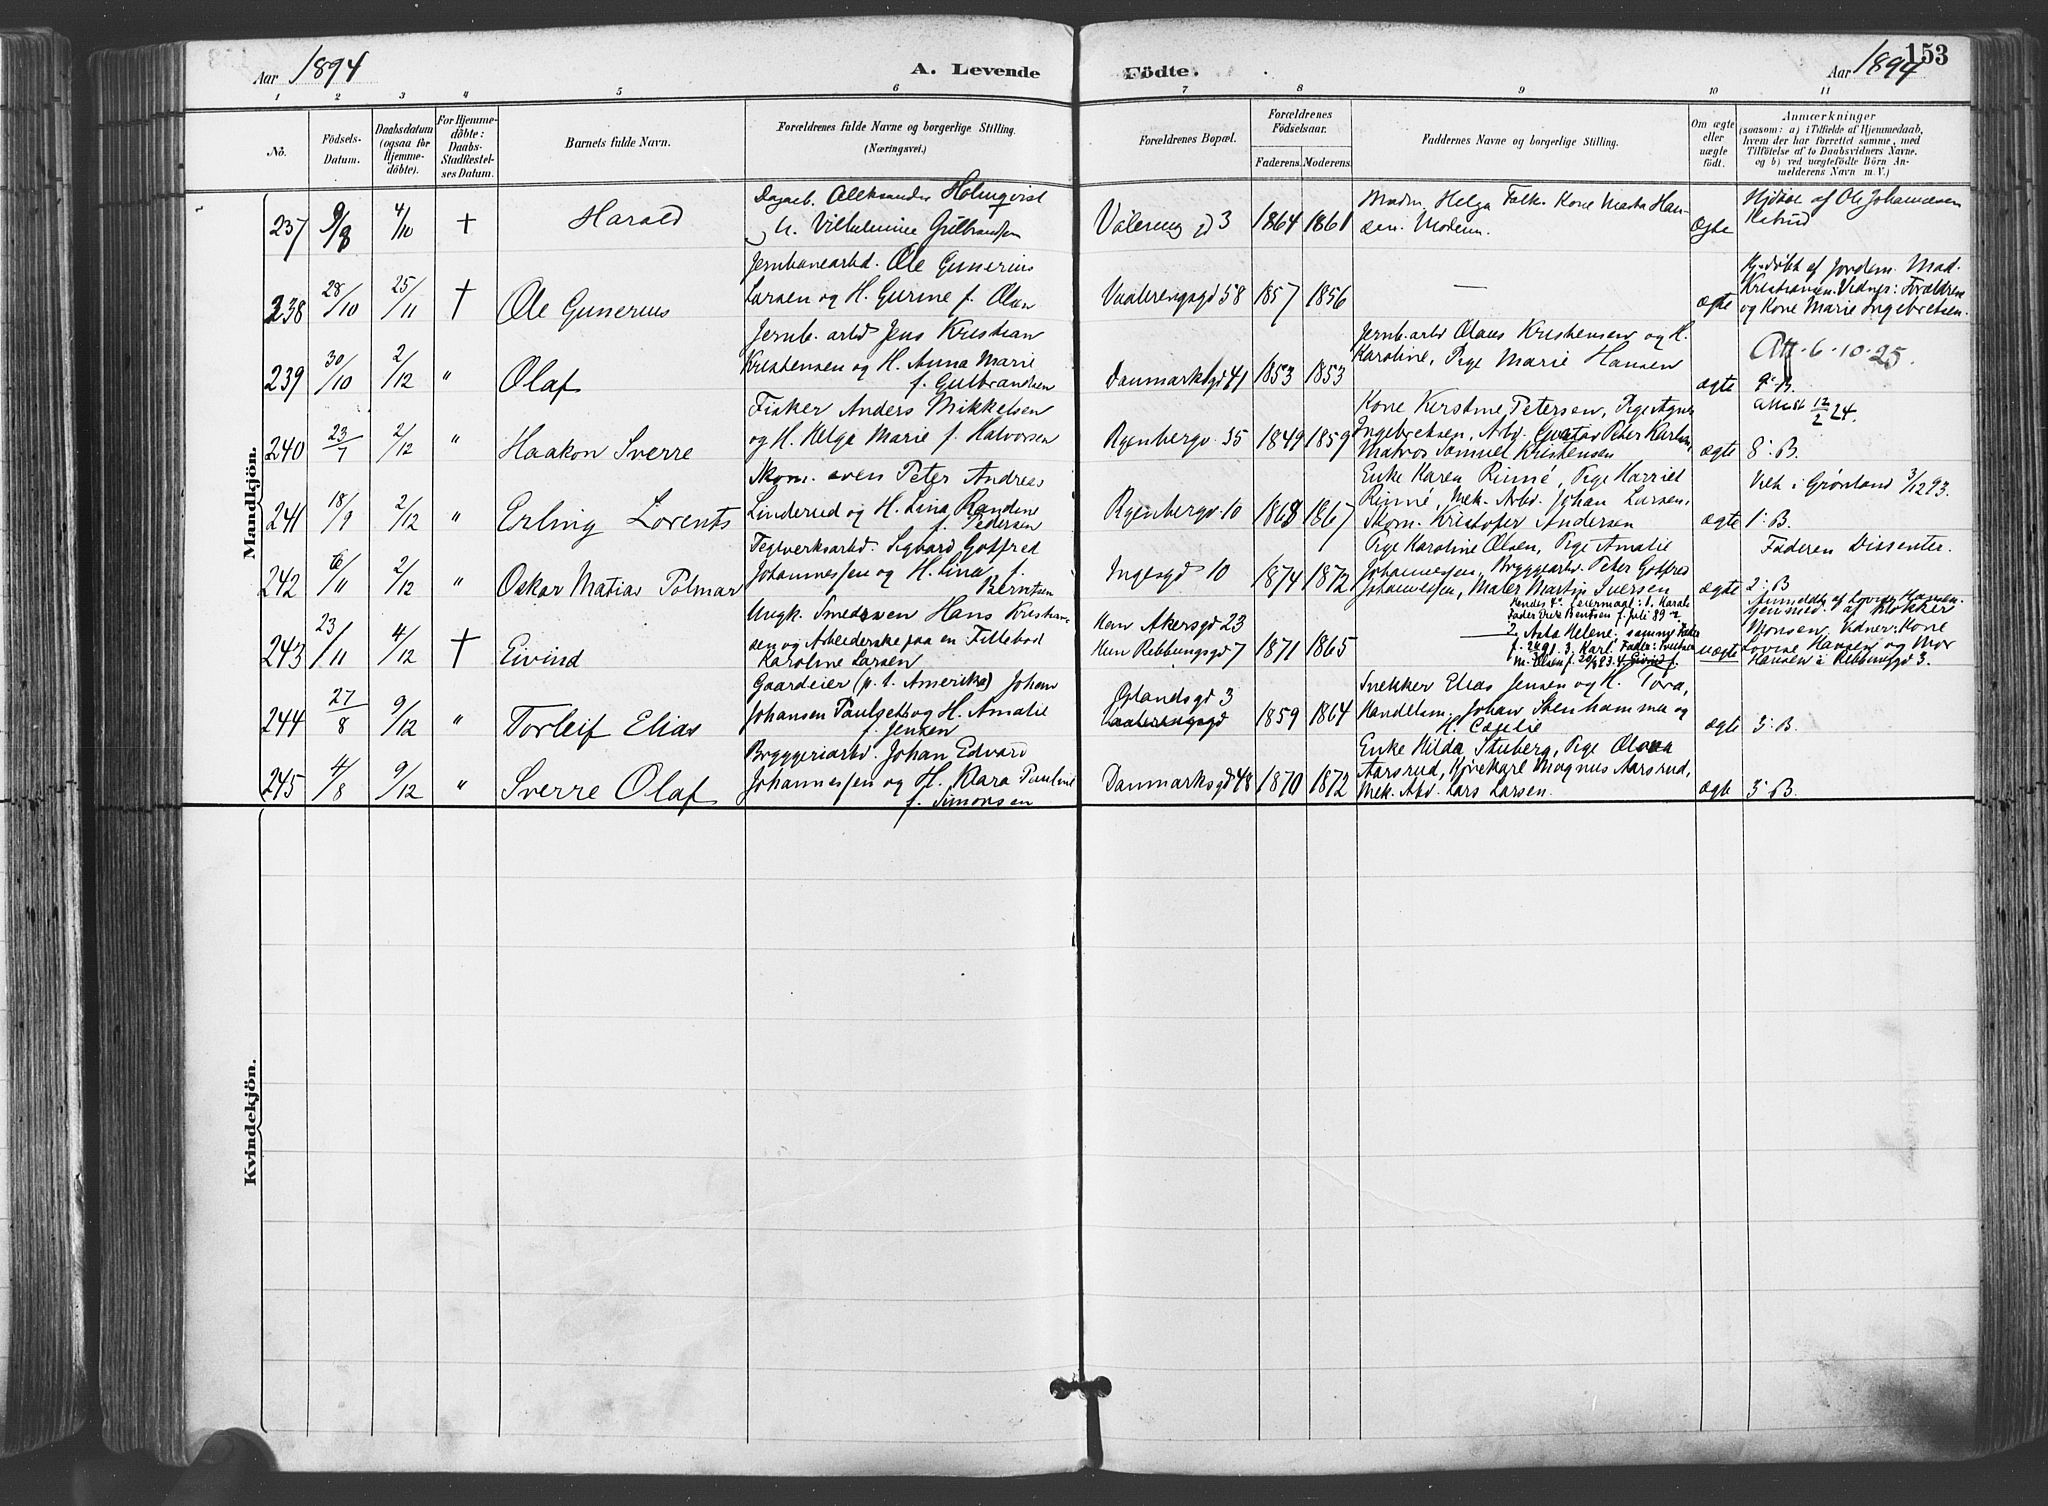 Aar 1894
A. Levende Födte.
Aar 1894
153
1 2 3 4 5 6 7 8 9 10 11
No.
Födsels-Datum.
Daabsdatum (ogsaa for Hjemme-döbte).
For Hjemme-döbte: Daabs-Stadfæstel-ses Datum.
Barnets fulde Navn.
Forældrenes fulde Navne og borgerlige Stilling.
(Næringsvei.)
Forældrenes Bopæl.
Forældrenes Födselsaar.
Faderens. Moderens.
Faddernes Navne og borgerlige Stilling.
Om ægte eller uægte födt.
Anmærkninger
(saasom: a) i Tilfælde af Hjemmedaab, hvem der har forrettet samme, med Tilföielse af to Daabsvidners Navne, og b) ved uægtefödte Börn An-melderens Navn m. V.)
Mandkjön.
237 9/8 4/10 + Harald
Dagarb. Aleksander Holmqvist
Vilhelmine Gulbrandsen
Valereng gd 3 1864 1861
Madm. Helga Falk. Kone Marta Han-
sen. Moderen.
Ægte
Hjdöbt af Ole Johannesen
238 28/10 25/11 + Ole Gunerius
Jernbanearbd. Ole Gunerius
Larsen og H. Gurine f. Olsen
Vaalerengsgd 58 1857 1856
—
ægte
Hj.döbt af Jordem. Mad.
Kristiansen. Vidner: Forældrene
og Kone Marie Ingebretsen.
239 30/10 2/12 " Olaf
Jernb. arbd Jens Kristian
Kristensen og H. Anna Marie
f. Gulbrandsen
Danmarksgd 41 1853 1853
Jernb. arbd Olaus Kristensen og H.
Karoline, Pige Marie Hansen
ægte
Att. 6-10-25.
9: B.
240 23/7 2/12 " Haakon Sverre
Fisker Anders Mikkelsen
og H. Helga Marie f. Halvorsen
Ryenbergv. 35 1849 1859
Kone Kirstine Petersen, Pige Agnes
Ingebretsen, Arbd. Gustav Peter Karlsen,
Matros Samuel Kristensen
ægte
Attest 12/2 24.
8: B.
241 18/9 2/12 " Erling Lorents
Skom. sven Peter Andreas
Linderud og H. Lina Randine
f. Pedersen
Ryenbergv. 10 1868 1867
Enke Karen Rinné, Pige Harriet
Rinné, Mek. Arbd. Johan Larsen,
Skom. Kristofer Andersen
ægte
Viet i Grönland 3/12 93.
1: B.
242 6/11 2/12 " Oskar Matias Polmar
Teglverksarbd. Sigvard Gotfred
Johannessen og H. Lina f.
Berntsen
Ingesgd 10 1874 1872
Pige Karoline Olsen, Pige Amalie
Johannessen, Byggearbd. Peter Gotfred
Johannessen, Maler Martin Iversen
ægte
Faderen Dissenter.
2: B
243 23/11 4/12 + Eivind
Ungk. Smedsven Hans Kristian-
sen og Arbeiderske paa en Fillebod
Karoline Larsen
Ham Akersgd 23
Hun Ribbungsgd 7 1871 1865
Hendes 4de Leiermaal: 1. Harald
f. Juli 89
2. Asta Helene. samme Fader
3. Karl. Fader:
uægte
Anmeldt af Lovise Hansen.
Hjemmed. af Klokker
Monsen. Vidner: Kone
Lovise Hansen og Mor
Hansen i Ribbungsgd 3.
244 27/8 9/12 " Torleif Elias
Gaardeier (p. t. Amerika) Johan
Johansen Paulseth og H. Amalie
f. Jensen
Oplandsgd 3
Vaalerengsgd 1859 1864
Snekker Elias Jensen og H. Tora,
Handelsm. Johan Stenhammer og
H. Cecilie
ægte 3: B.
245 4/8 9/12 " Sverre Olaf
Bryggeriarbd. Johan Edvard
Johannessen og H. Klara Pauline
f. Simonsen
Danmarksgd 48 1870 1872
Enke Hilda Stuberg, Pige Olava
Aarsrud, Kjörekarl Magnus Aarsrud,
Mek. Arbd. Lars Larsen.
ægte 3: B.
Kvindekjön.